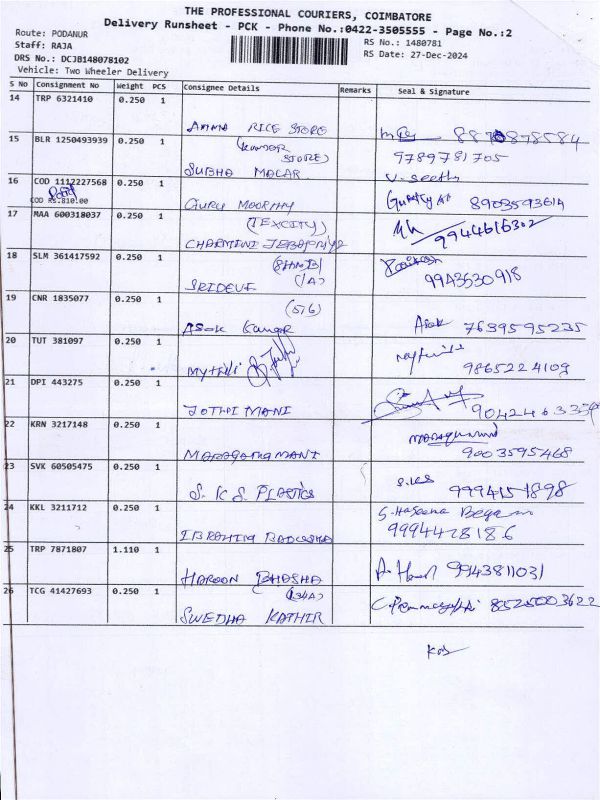 THE PROFESSIONAL COURIERS, COIMBATORE
Delivery Runsheet - PCK - Phone No.:0422-3505555 - Page No.:2
Route: PODANUR
Staff: RAJA
RS No.: 1480781
DRS No.: DCJB148078102
RS Date: 27-Dec-2024
Vehicle: Two Wheeler Delivery
S No Consignment No Weight PCS Consignee Details Remarks Seal & Signature
14 TRP 6321410 0.250 1
AMMA RICE STORE
15 BLR 1250493939 0.250 1 (KUMAR STORE) 9789781705
SUBHA MALAR V. Seetha
16 COD 1112227568 0.250 1
COD Rs.810.00 GURU MOORTHY 8903593614
17 MAA 600318037 0.250 1 (TEXCITY) 9944616302
CHARMINI
18 SLM 361417592 0.250 1
SRIDEVI (1A) 9943530918
19 CNR 1835077 0.250 1 (516)
ASOK Kumar Asok 7639595235
20 TUT 381097 0.250 1
Mythili 9865224109
21 DPI 443275 0.250 1
JOTHI MANI
22 KRN 3217148 0.250 1
MARAGATHAMANI 9003595468
23 SVK 60505475 0.250 1
S. K S. PLASTICS S.KS 9994151898
24 KKL 3211712 0.250 1 S. Haseena Begam
IBRAHIM BADUSHA 9994428186
25 TRP 7871807 1.110 1
HAROON BHASHA 9943811031
26 TCG 41427693 0.250 1 (131A)
SWEDHA KATHIR